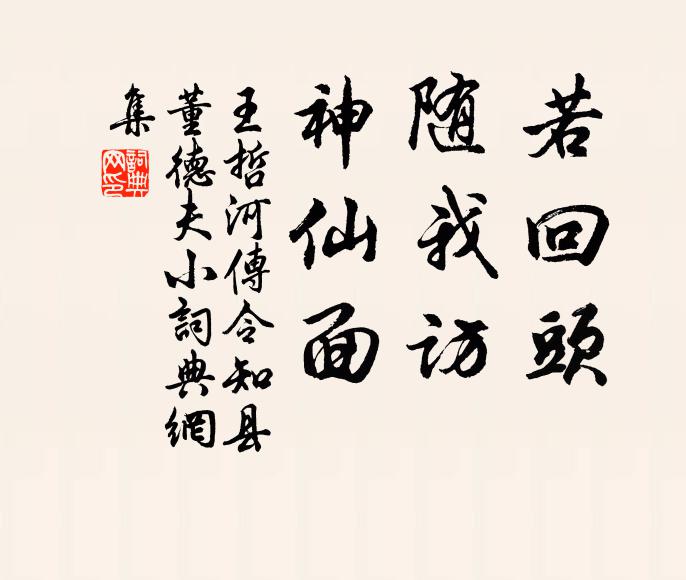 若回頭
随我訪
神仙面
王哲河傳令知县
董德夫小詞典網
集
詞典
网印